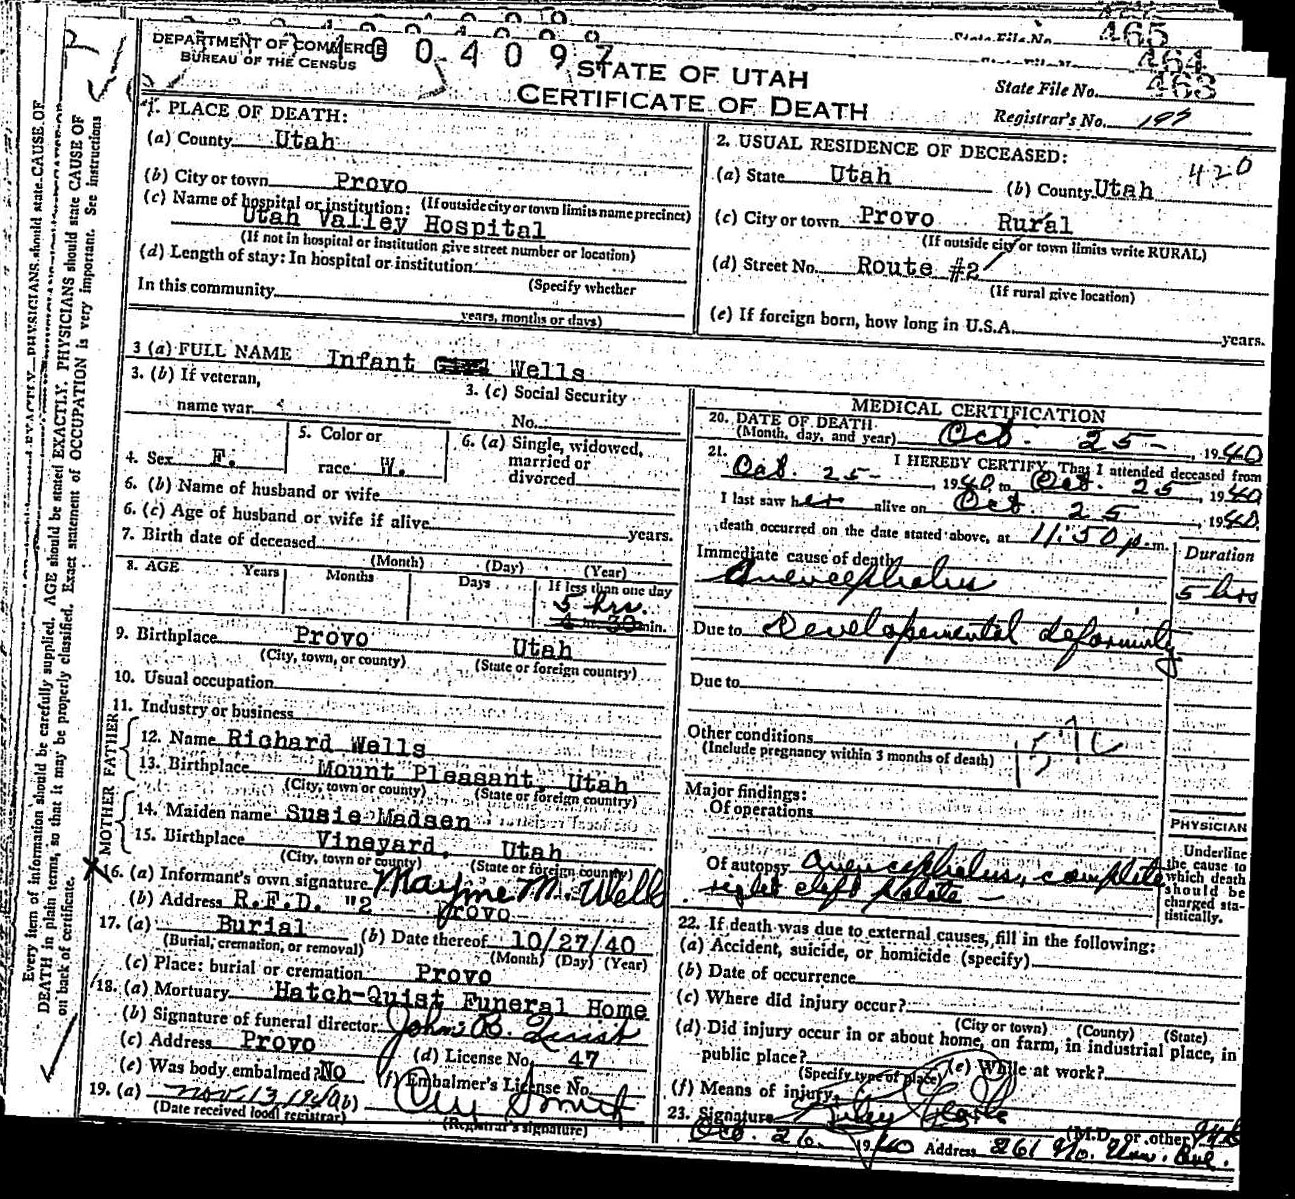 465
State File No. 464
DEPARTMENT OF COMMERCE
BUREAU OF THE CENSUS
1004097
STATE OF UTAH
CERTIFICATE OF DEATH
State File No. 463
Registrar's No. 197
1. PLACE OF DEATH:
(a) County Utah
(b) City or town Provo
(If outside city or town limits name precinct)
(c) Name of hospital or institution:
Utah Valley Hospital
(If not in hospital or institution give street number or location)
(d) Length of stay: In hospital or institution
(Specify whether
In this community
years, months or days)
2. USUAL RESIDENCE OF DECEASED:
420
(a) State Utah (b) County Utah
(c) City or town Provo Rural
(If outside city or town limits write RURAL)
(d) Street No. Route #2
(If rural give location)
(e) If foreign born, how long in U.S.A. years.
3 (a) FULL NAME Infant Girl Wells
3. (b) If veteran,
name war
3. (c) Social Security
No.
4. Sex F.
5. Color or
race W.
6. (a) Single, widowed,
married or
divorced
6. (b) Name of husband or wife
6. (c) Age of husband or wife if alive years.
7. Birth date of deceased
(Month) (Day) (Year)
8. AGE Years Months Days If less than one day
5 hrs.
4 hr. 30 min.
9. Birthplace Provo Utah
(City, town, or county) (State or foreign country)
10. Usual occupation
11. Industry or business
FATHER
12. Name Richard Wells
13. Birthplace Mount Pleasant, Utah
(City, town or county) (State or foreign country)
MOTHER
14. Maiden name Susie Madsen
15. Birthplace Vineyard, Utah
(City, town or county) (State or foreign country)
16. (a) Informant's own signature Mayme M. Wells
(b) Address R.F.D. "2 Provo
17. (a) Burial (b) Date thereof 10/27/40
(Burial, cremation, or removal) (Month) (Day) (Year)
(c) Place: burial or cremation Provo
18. (a) Mortuary Hatch-Quist Funeral Home
(b) Signature of funeral director John B. Quist
(c) Address Provo (d) License No. 47
(e) Was body embalmed? No (f) Embalmer's License No.
19. (a) Nov. 13, 1940 (b)
(Date received local registrar) (Registrar's signature)
MEDICAL CERTIFICATION
20. DATE OF DEATH
(Month, day, and year) Oct. 25 - , 1940
21. I HEREBY CERTIFY, That I attended deceased from
Oct. 25 - , 1940 to Oct. 25, 1940
I last saw her alive on Oct 25, 1940.
death occurred on the date stated above, at 11:50 p.m.
Duration
Immediate cause of death
Anencephalus 5 hrs
Due to Developmental deformity
Due to
Other conditions
(Include pregnancy within 3 months of death)
Major findings:
Of operations
Of autopsy Anencephalus, complete
right cleft palate -
PHYSICIAN
Underline
the cause to
which death
should be
charged sta-
tistically.
22. If death was due to external causes, fill in the following:
(a) Accident, suicide, or homicide (specify)
(b) Date of occurrence
(c) Where did injury occur?
(City or town) (County) (State)
(d) Did injury occur in or about home, on farm, in industrial place, in
public place? (e) While at work?
(Specify type of place)
(f) Means of injury
23. Signature
(M.D. or other)
Oct. 26. 1940 Address 261 No. Univ. Ave.
Every item of information should be carefully supplied. AGE should be stated EXACTLY. PHYSICIANS should state CAUSE OF
DEATH in plain terms, so that it may be properly classified. Exact statement of OCCUPATION is very important. See instructions
on back of certificate.